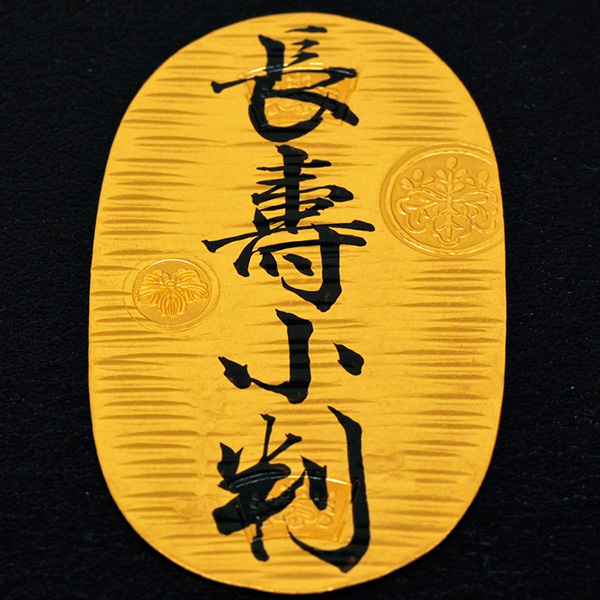 長壽小判